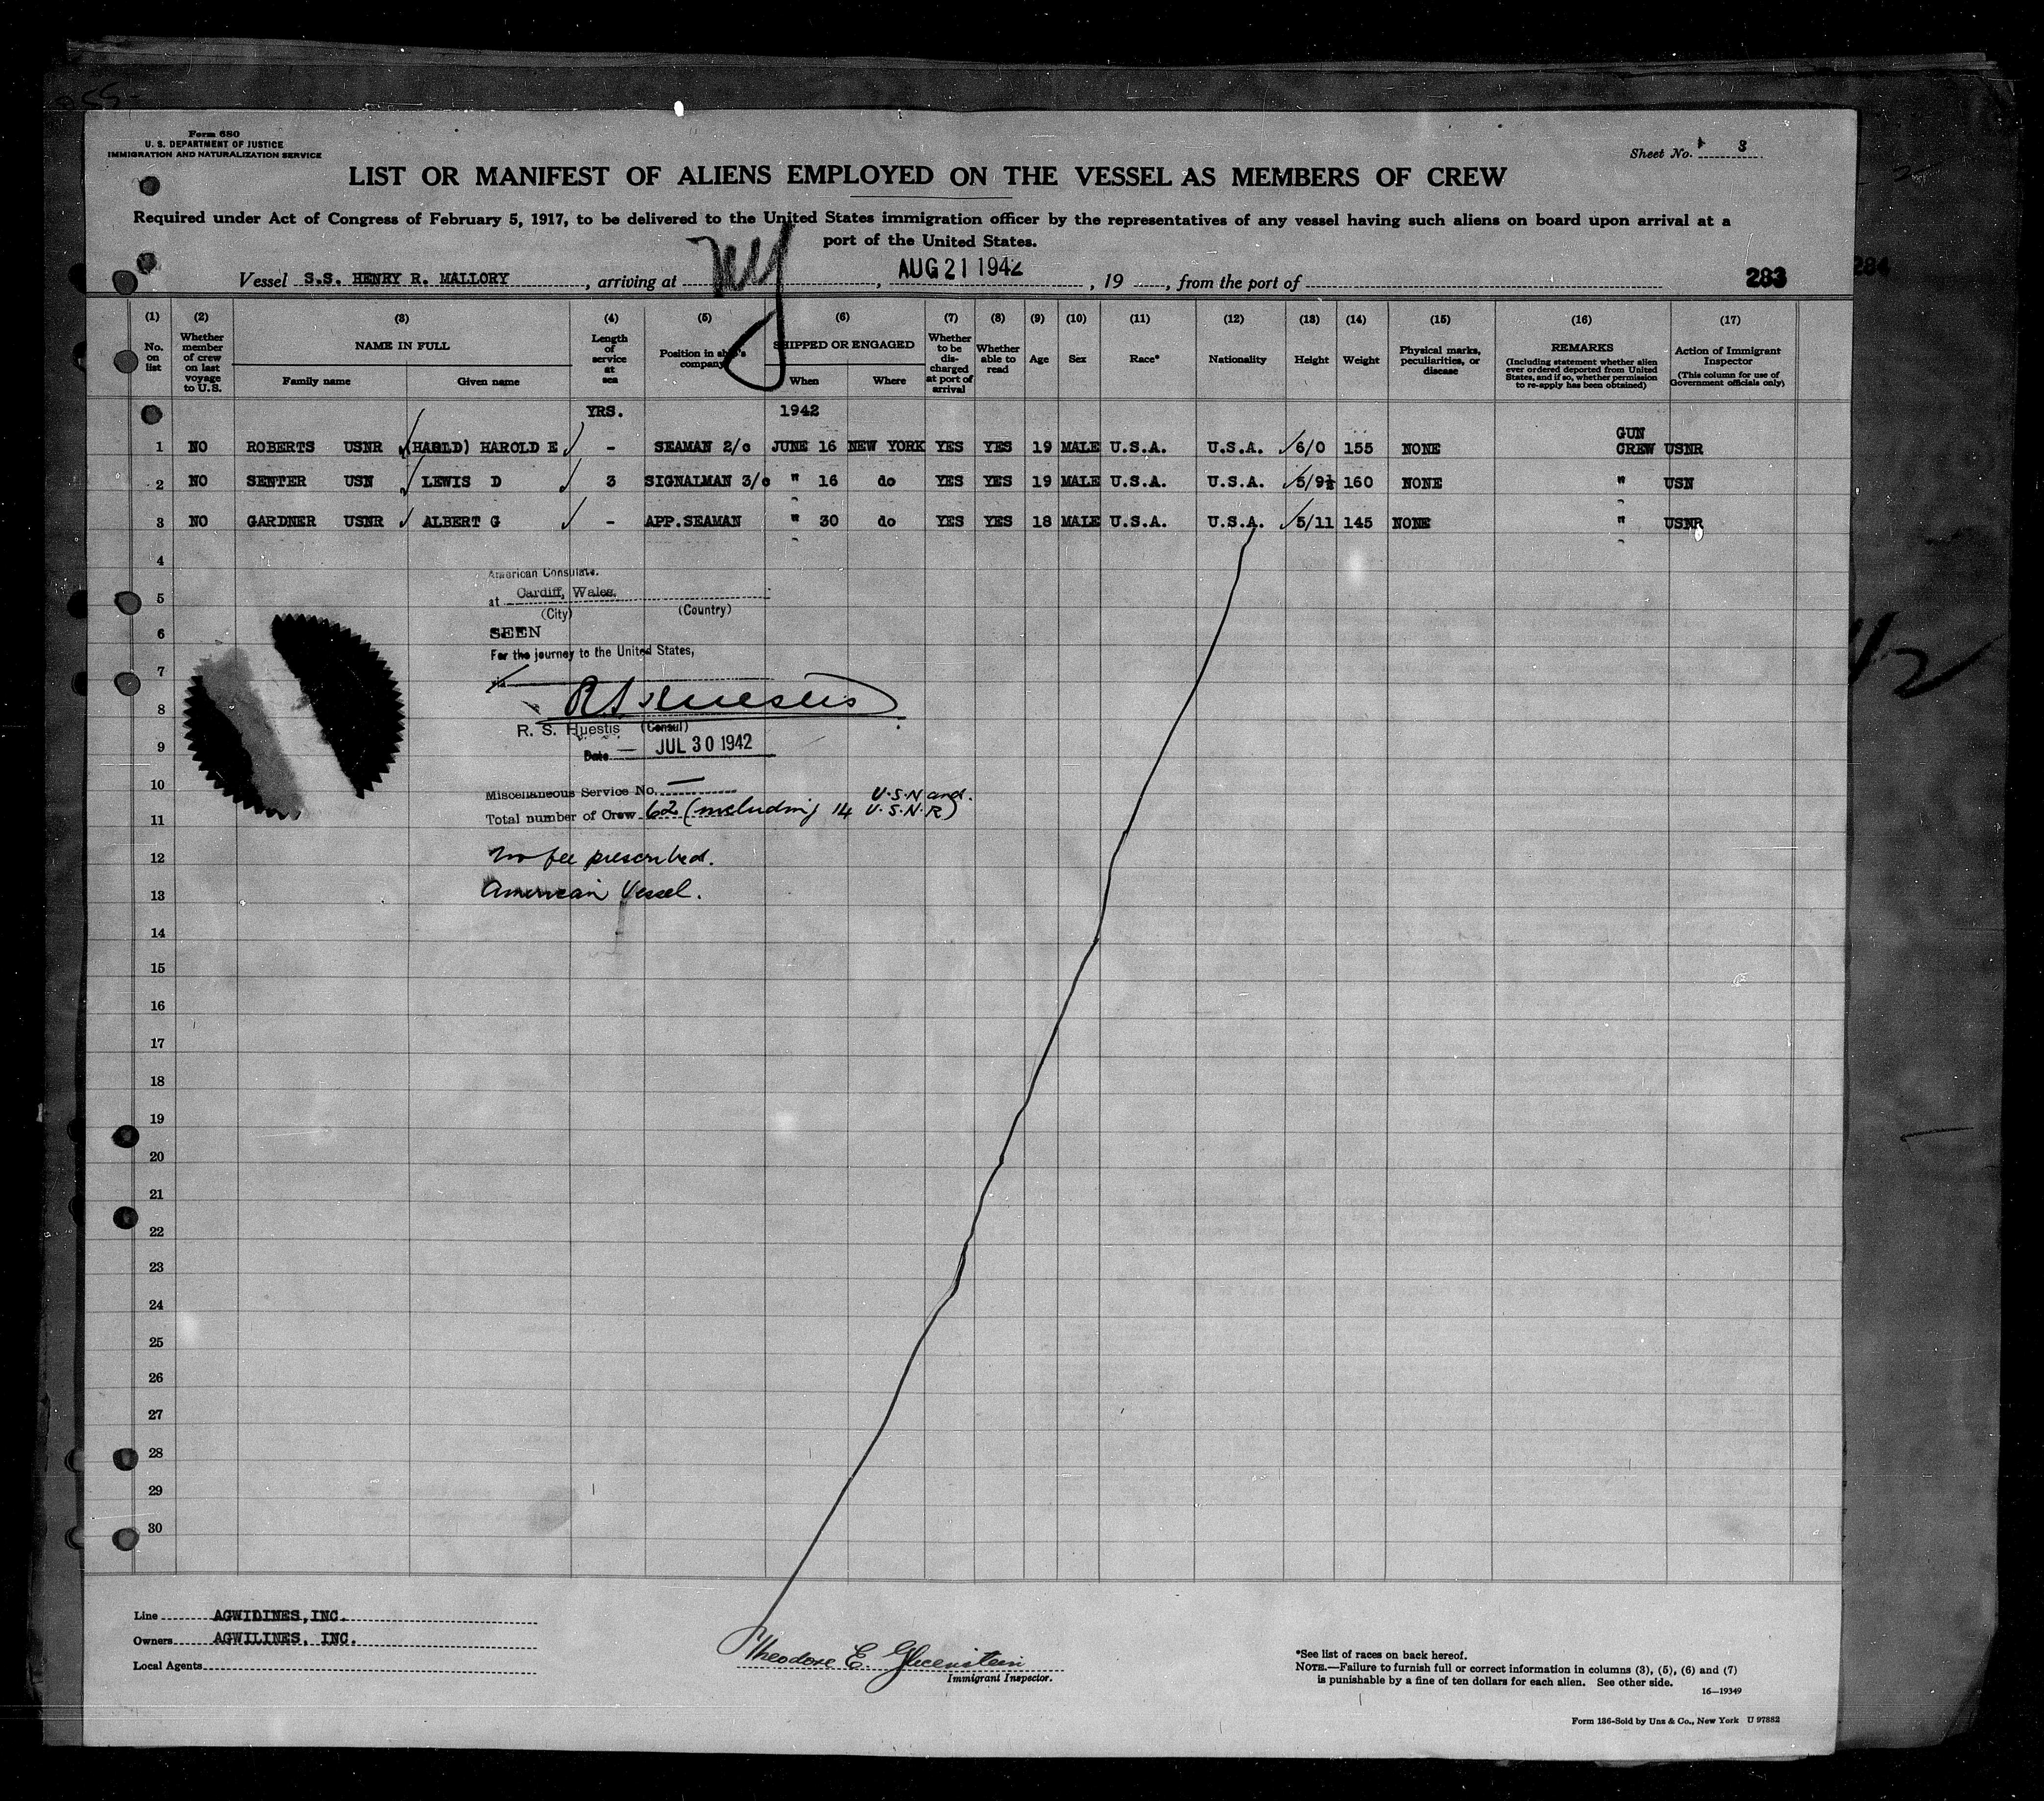 Form 680
U. S. DEPARTMENT OF JUSTICE
IMMIGRATION AND NATURALIZATION SERVICE
Sheet No. 3
LIST OR MANIFEST OF ALIENS EMPLOYED ON THE VESSEL AS MEMBERS OF CREW
Required under Act of Congress of February 5, 1917, to be delivered to the United States immigration officer by the representatives of any vessel having such aliens on board upon arrival at a
port of the United States.
Vessel S.S. HENRY R. MALLORY, arriving at NY, AUG 21 1942, 19, from the port of 283
284
(1) No. on list
(2) Whether member of crew on last voyage to U.S.
(3) NAME IN FULL
Family name Given name
(4) Length of service at sea
(5) Position in ship's company
(6) SHIPPED OR ENGAGED
When Where
(7) Whether to be discharged at port of arrival
(8) Whether able to read
(9) Age
(10) Sex
(11) Race*
(12) Nationality
(13) Height
(14) Weight
(15) Physical marks, peculiarities, or disease
(16) REMARKS
(Including statement whether alien ever ordered deported from United States, and if so, whether permission to re-apply has been obtained)
(17) Action of Immigrant Inspector
(This column for use of Government officials only)
YRS. 1942
1 NO ROBERTS USNR (HARLD) HAROLD E - SEAMAN 2/c JUNE 16 NEW YORK YES YES 19 MALE U.S.A. U.S.A. 6/0 155 NONE GUN CREW USNR
2 NO SENTER USN LEWIS D 3 SIGNALMAN 3/c " 16 do YES YES 19 MALE U.S.A. U.S.A. 5/9½ 160 NONE " USN
3 NO GARDNER USNR ALBERT G - APP.SEAMAN " 30 do YES YES 18 MALE U.S.A. U.S.A. 5/11 145 NONE " USNR
4
American Consulate.
5
at Cardiff, Wales.
(City) (Country)
6
SEEN
For the journey to the United States,
7
via
8
R S Huestis
R. S. Huestis (Consul)
9
Date — JUL 30 1942
10
Miscellaneous Service No. —
11
Total number of Crew 62 (including 14 U.S.N and U.S.N.R)
12
No fee prescribed.
13
American Vessel.
14
15
16
17
18
19
20
21
22
23
24
25
26
27
28
29
30
Line AGWIDINES, INC.
Owners AGWILINES, INC.
Local Agents
Immigrant Inspector.
*See list of races on back hereof.
NOTE.—Failure to furnish full or correct information in columns (3), (5), (6) and (7)
is punishable by a fine of ten dollars for each alien. See other side.
16—19349
Form 136-Sold by Unz & Co., New York U 97882